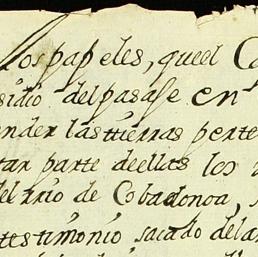 los papeles, que el C
sidio del pasase en
ender las tierras perte
tar parte de ellas los
del rrio de Cobadonoa,
testimonio sacado del a